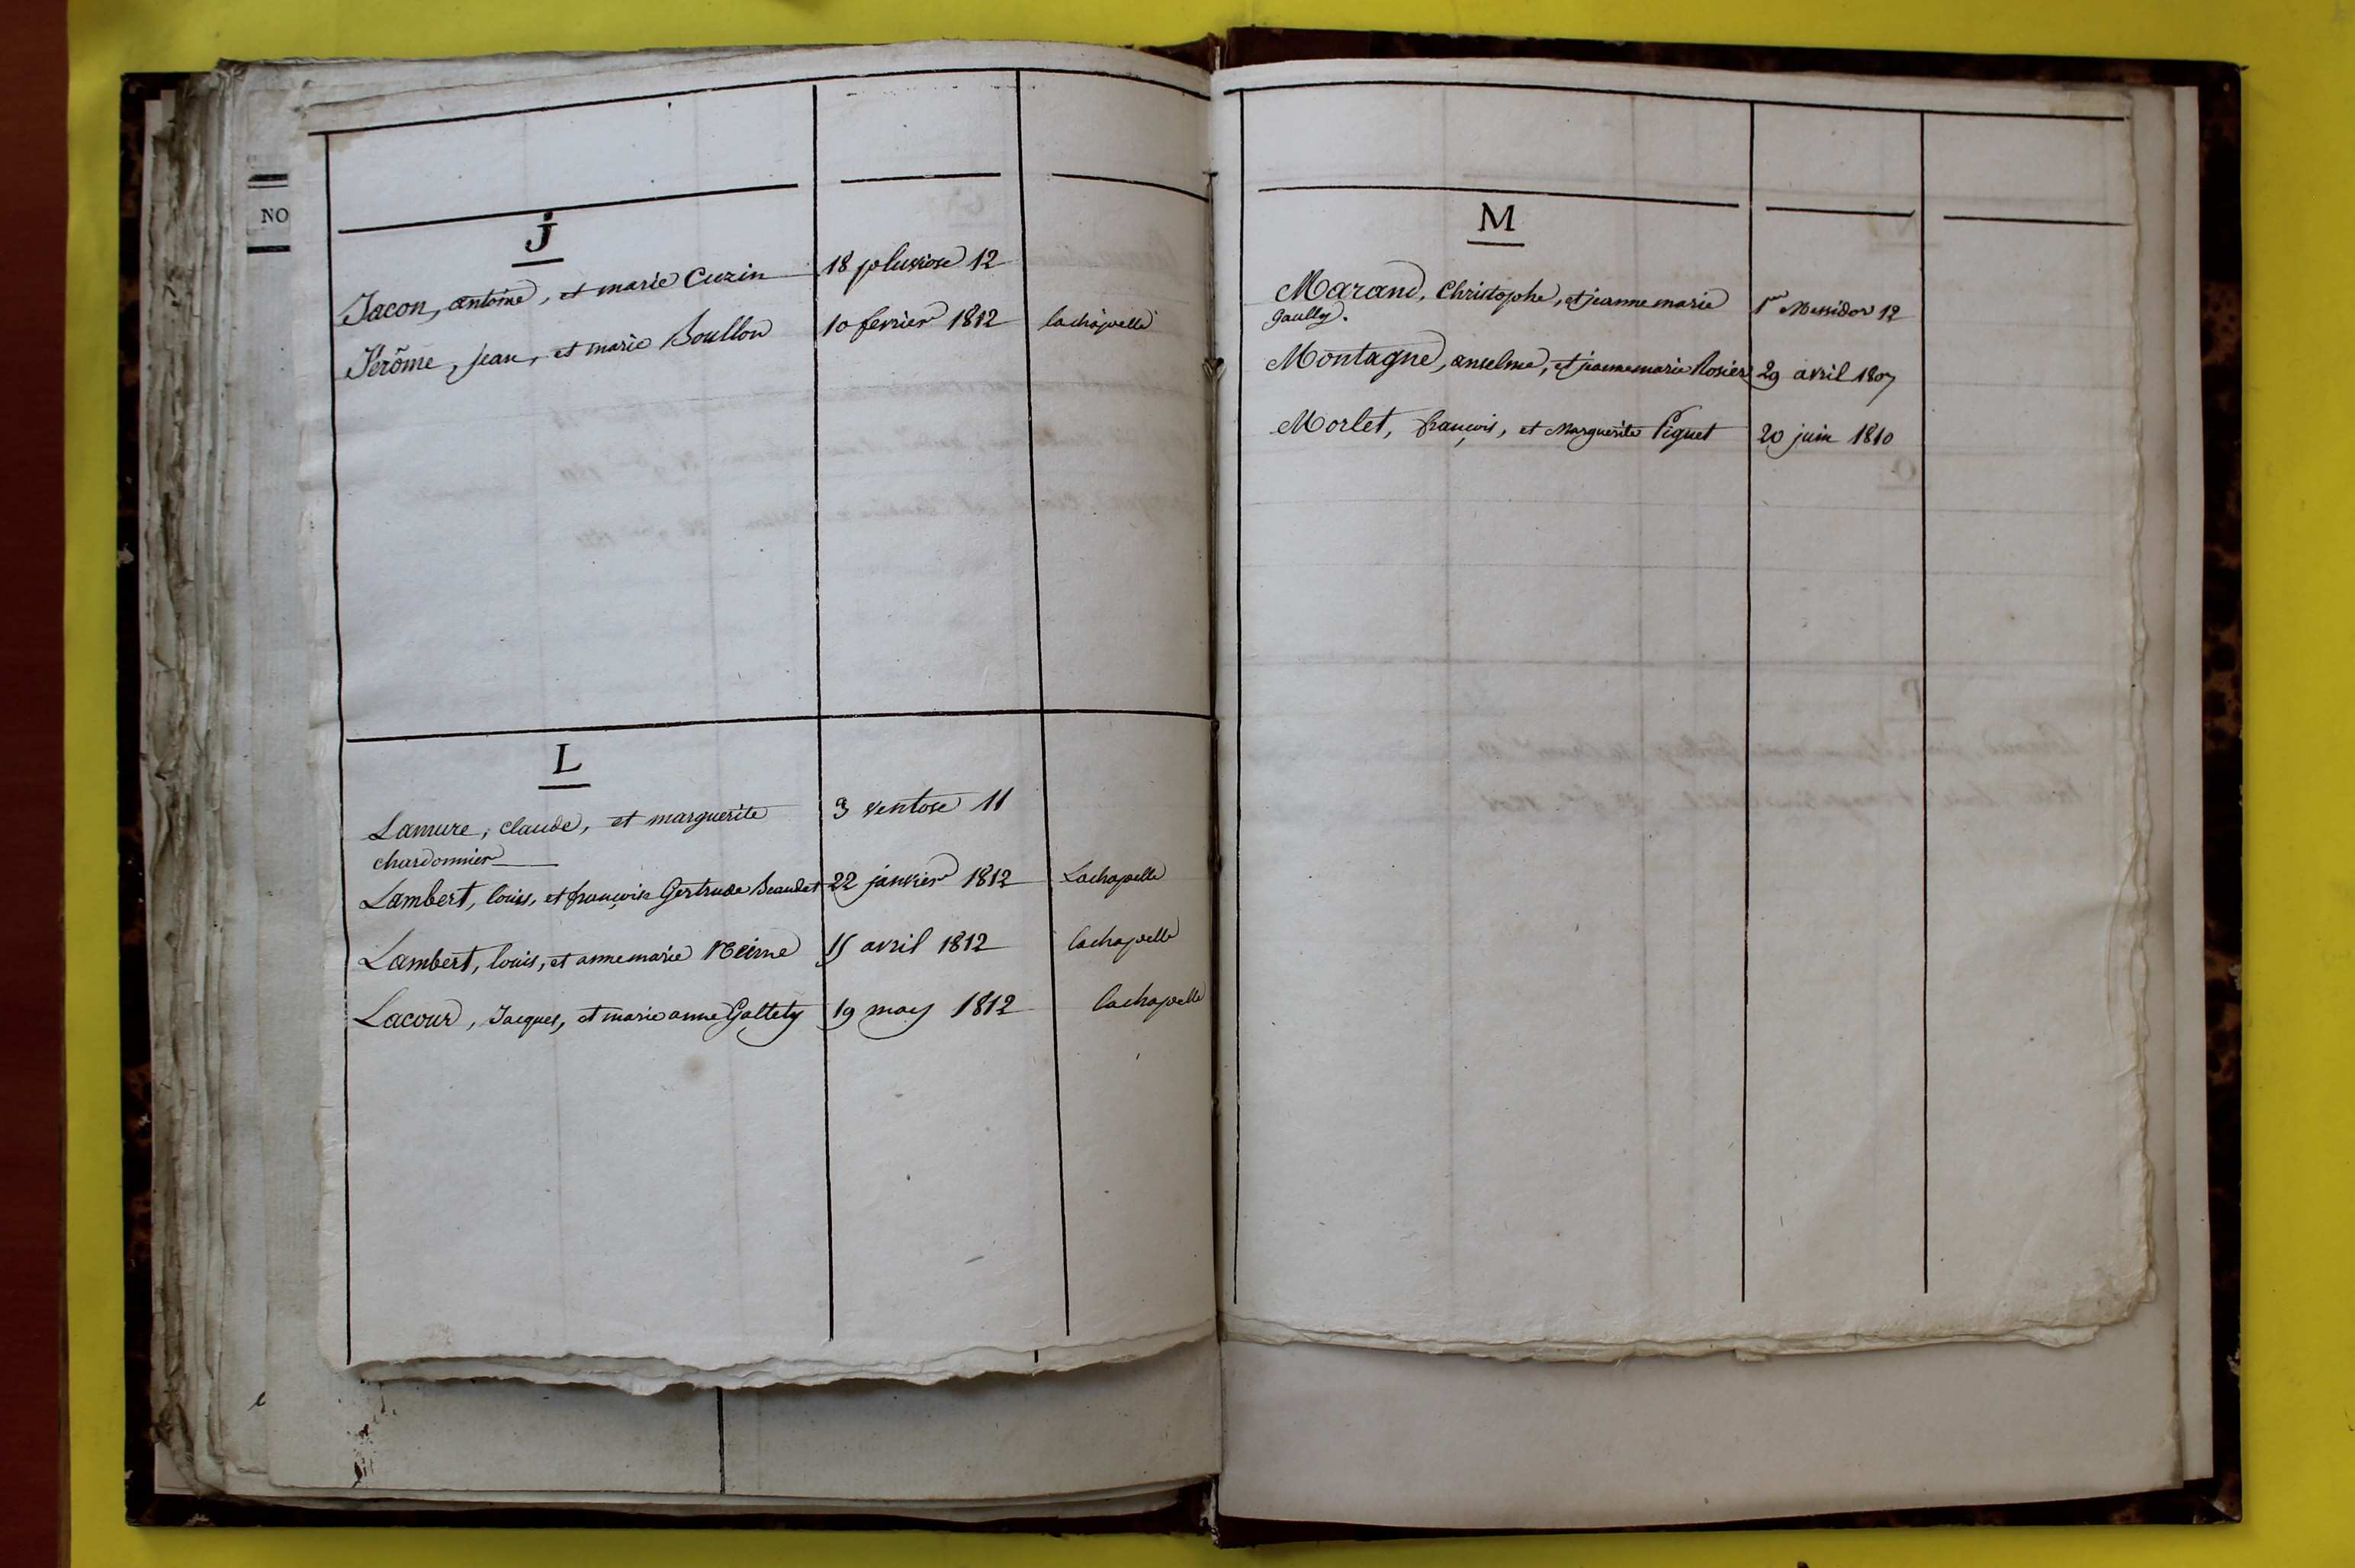 NO
J
Jacon, antoine, et marie Cuzin 18 pluviose 12
Jerôme, jean, et marie Boullon 10 fevrier 1812 lachapelle
L
Lamure, claude, et marguerite 3 ventose 11
chardonnier
Lambert, louis, et françoise Gertrude Beaudet 22 janvier 1812 Lachapelle
Lambert, louis, et anne marie 15 avril 1812 lachapelle
Lacour, Jacques, et marie anne Galtety 19 may 1812 lachapelle
M
Marand, Christophe, et jeanne marie 1er Messidor 12
gaully.
Montagne, anselme, et jeanne marie Rosier 29 avril 1807
Morlet, françois, et Marguerite Piquet 20 juin 1810